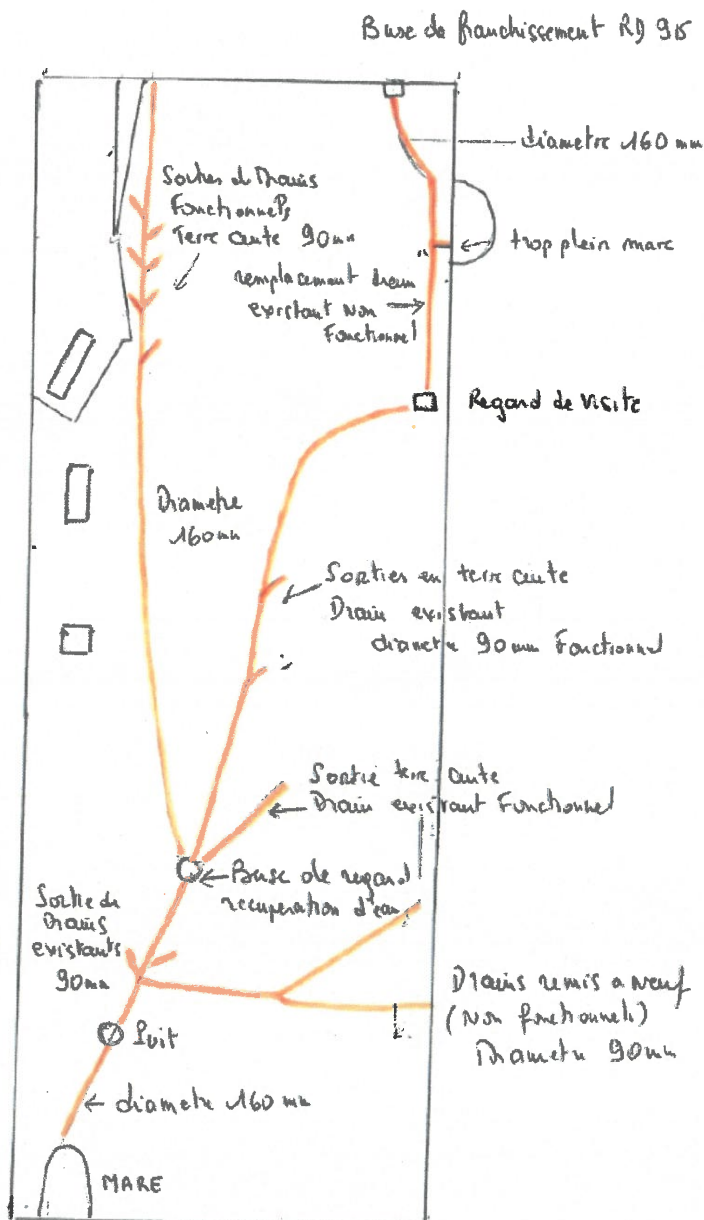 Buse de franchissement RD 915
diametre 160 mm
Sorties de Drains
Fonctionnels
Terre cuite 90mm
trop plein mare
remplacement drain
existant Non
Fonctionnel
Regard de visite
Diametre
160mm
Sorties en terre cuite
Drain existant
diametre 90mm Fonctionnel
Sortie terre cuite
Drain existant Fonctionnel
Buse de regard
recuperation d'eau
Sortie de
Drains
existants
90mm
Drains remis a neuf
(Non fonctionnels)
Diametre 90mm
Puit
diametre 160 mm
MARE